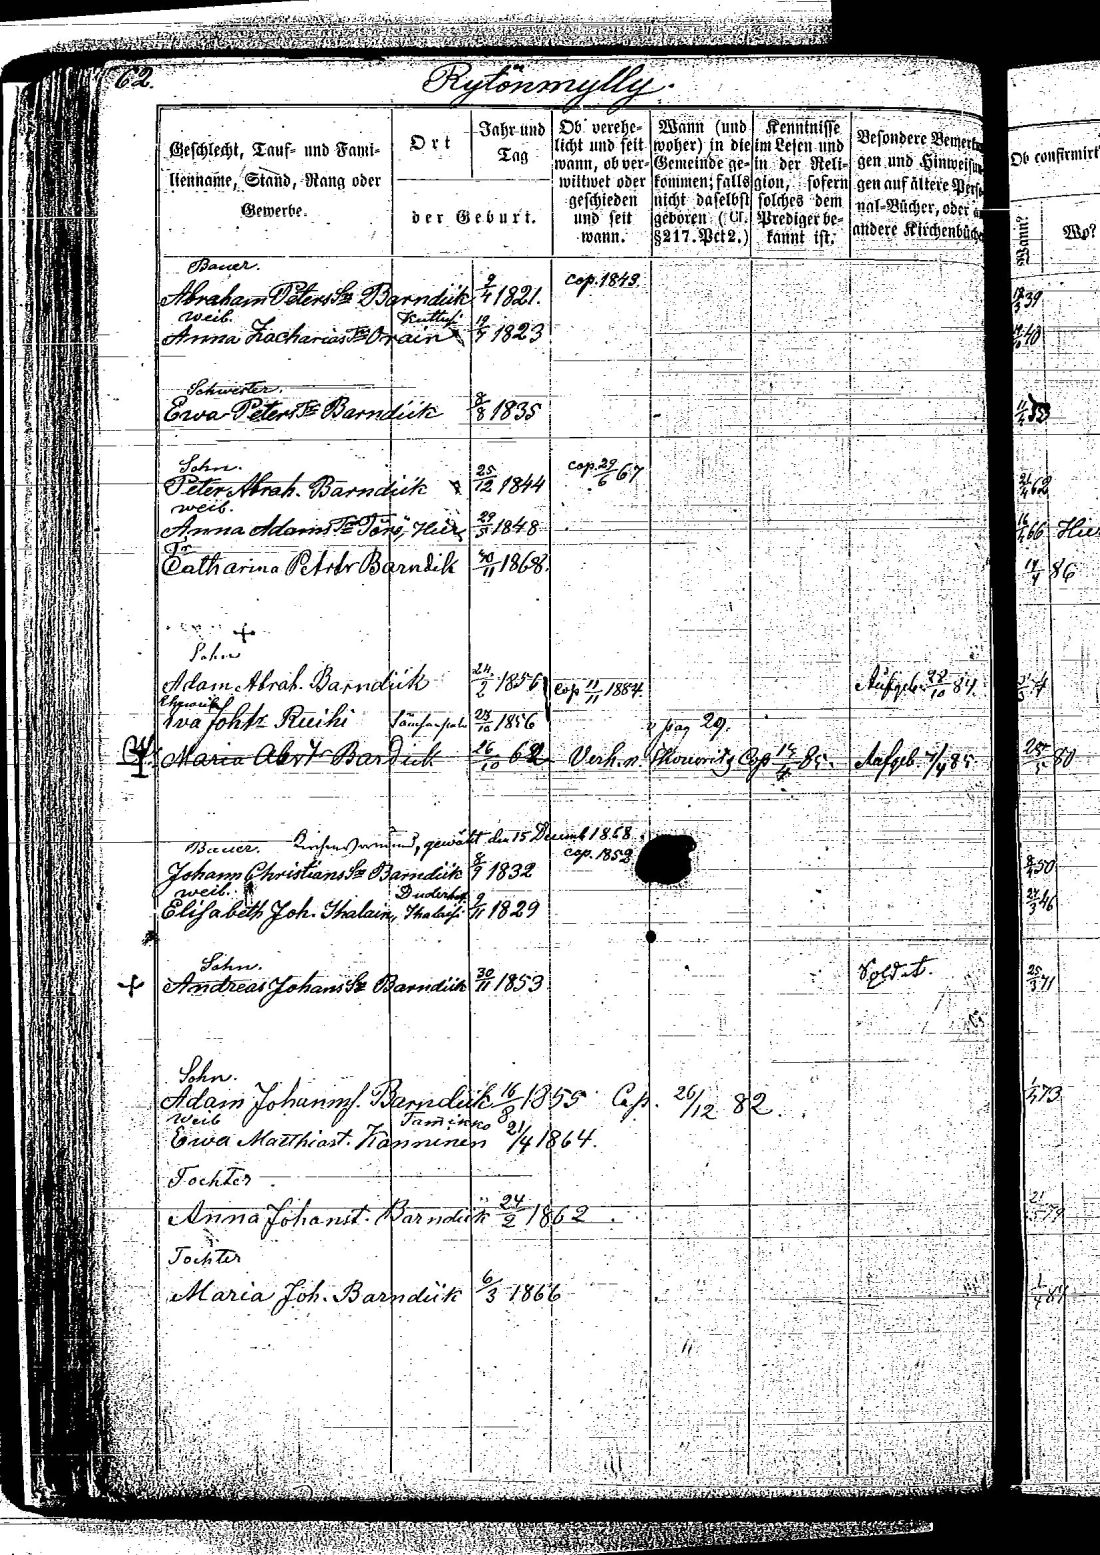 62.
Rytönmylly.
Geschlecht, Tauf- und Fami-
lienname, Stand, Rang oder
Gewerbe.
Ort
Jahr und
Tag
der Geburt.
Ob verehe-
licht und seit
wann, ob ver-
wittwet oder
geschieden
und seit
wann.
Wann (und
woher) in die
Gemeinde ge-
kommen; falls
nicht daselbst
geboren (Cf.
§ 217. Pct 2.)
Kenntnisse
im Lesen und
in der Reli-
gion, sofern
solches dem
Prediger be-
kannt ist.
Besondere Bemerk
gen und Hinweisun
gen auf ältere Perso
nal-Bücher, oder a
andere Kirchenbüche
Ob confirmirt
Wann?
Wo?
Bauer.
Abraham Peters Sn Barndük 9/4 1821. cop. 1843 39
weib. Kuttusi
Anna Zacharias Tr Orain 19/7 1823 40
Schwester.
Ewa Peters Tr Barndük 8/8 1835
Sohn.
Peter Abrah. Barndük 25/12 1844 cop. 29/6 67 62
weib.
Anna Adams Tr Törö, Hier 29/5 1848 66 Hier
Tr
Catharina Petrtr Barndük 30/11 1868. 17/4 86
Sohn
Adam Abrah. Barndük 24/2 1856 cop 11/11 1884. Aufgeb. 28/10 84
Ehweib
Eva Johtr Ruihi 28/10 1856 v pag 29.
Maria Abrtr Bardük 26/10 62 Verh. n. Skworitz Cop 14/4 85. Aufgeb. 7/4 85 25/5 80
Bauer. Kirchenvormund, gewählt den 15 Decemb 1868
Johann Christians Sn Barndük 8/9 1832 cop. 1852 50
weib. Duderhof
Elisabeth Joh. Ihalain, Ihalaisi 9/11 1829 27/3 46
Sohn.
Andreas Johans Sn Barndük 30/11 1853 Soldat. 25/3 71
Sohn.
Adam Johanns. Barndük 16/8 1855 Cop. 26/12 82. 73
weib Tamikko
Ewa Matthiast. Kanninen 21/4 1864.
Tochter
Anna Johanst. Barndük 24/2 1862
Tochter
Maria Joh. Barndük 6/3 1866